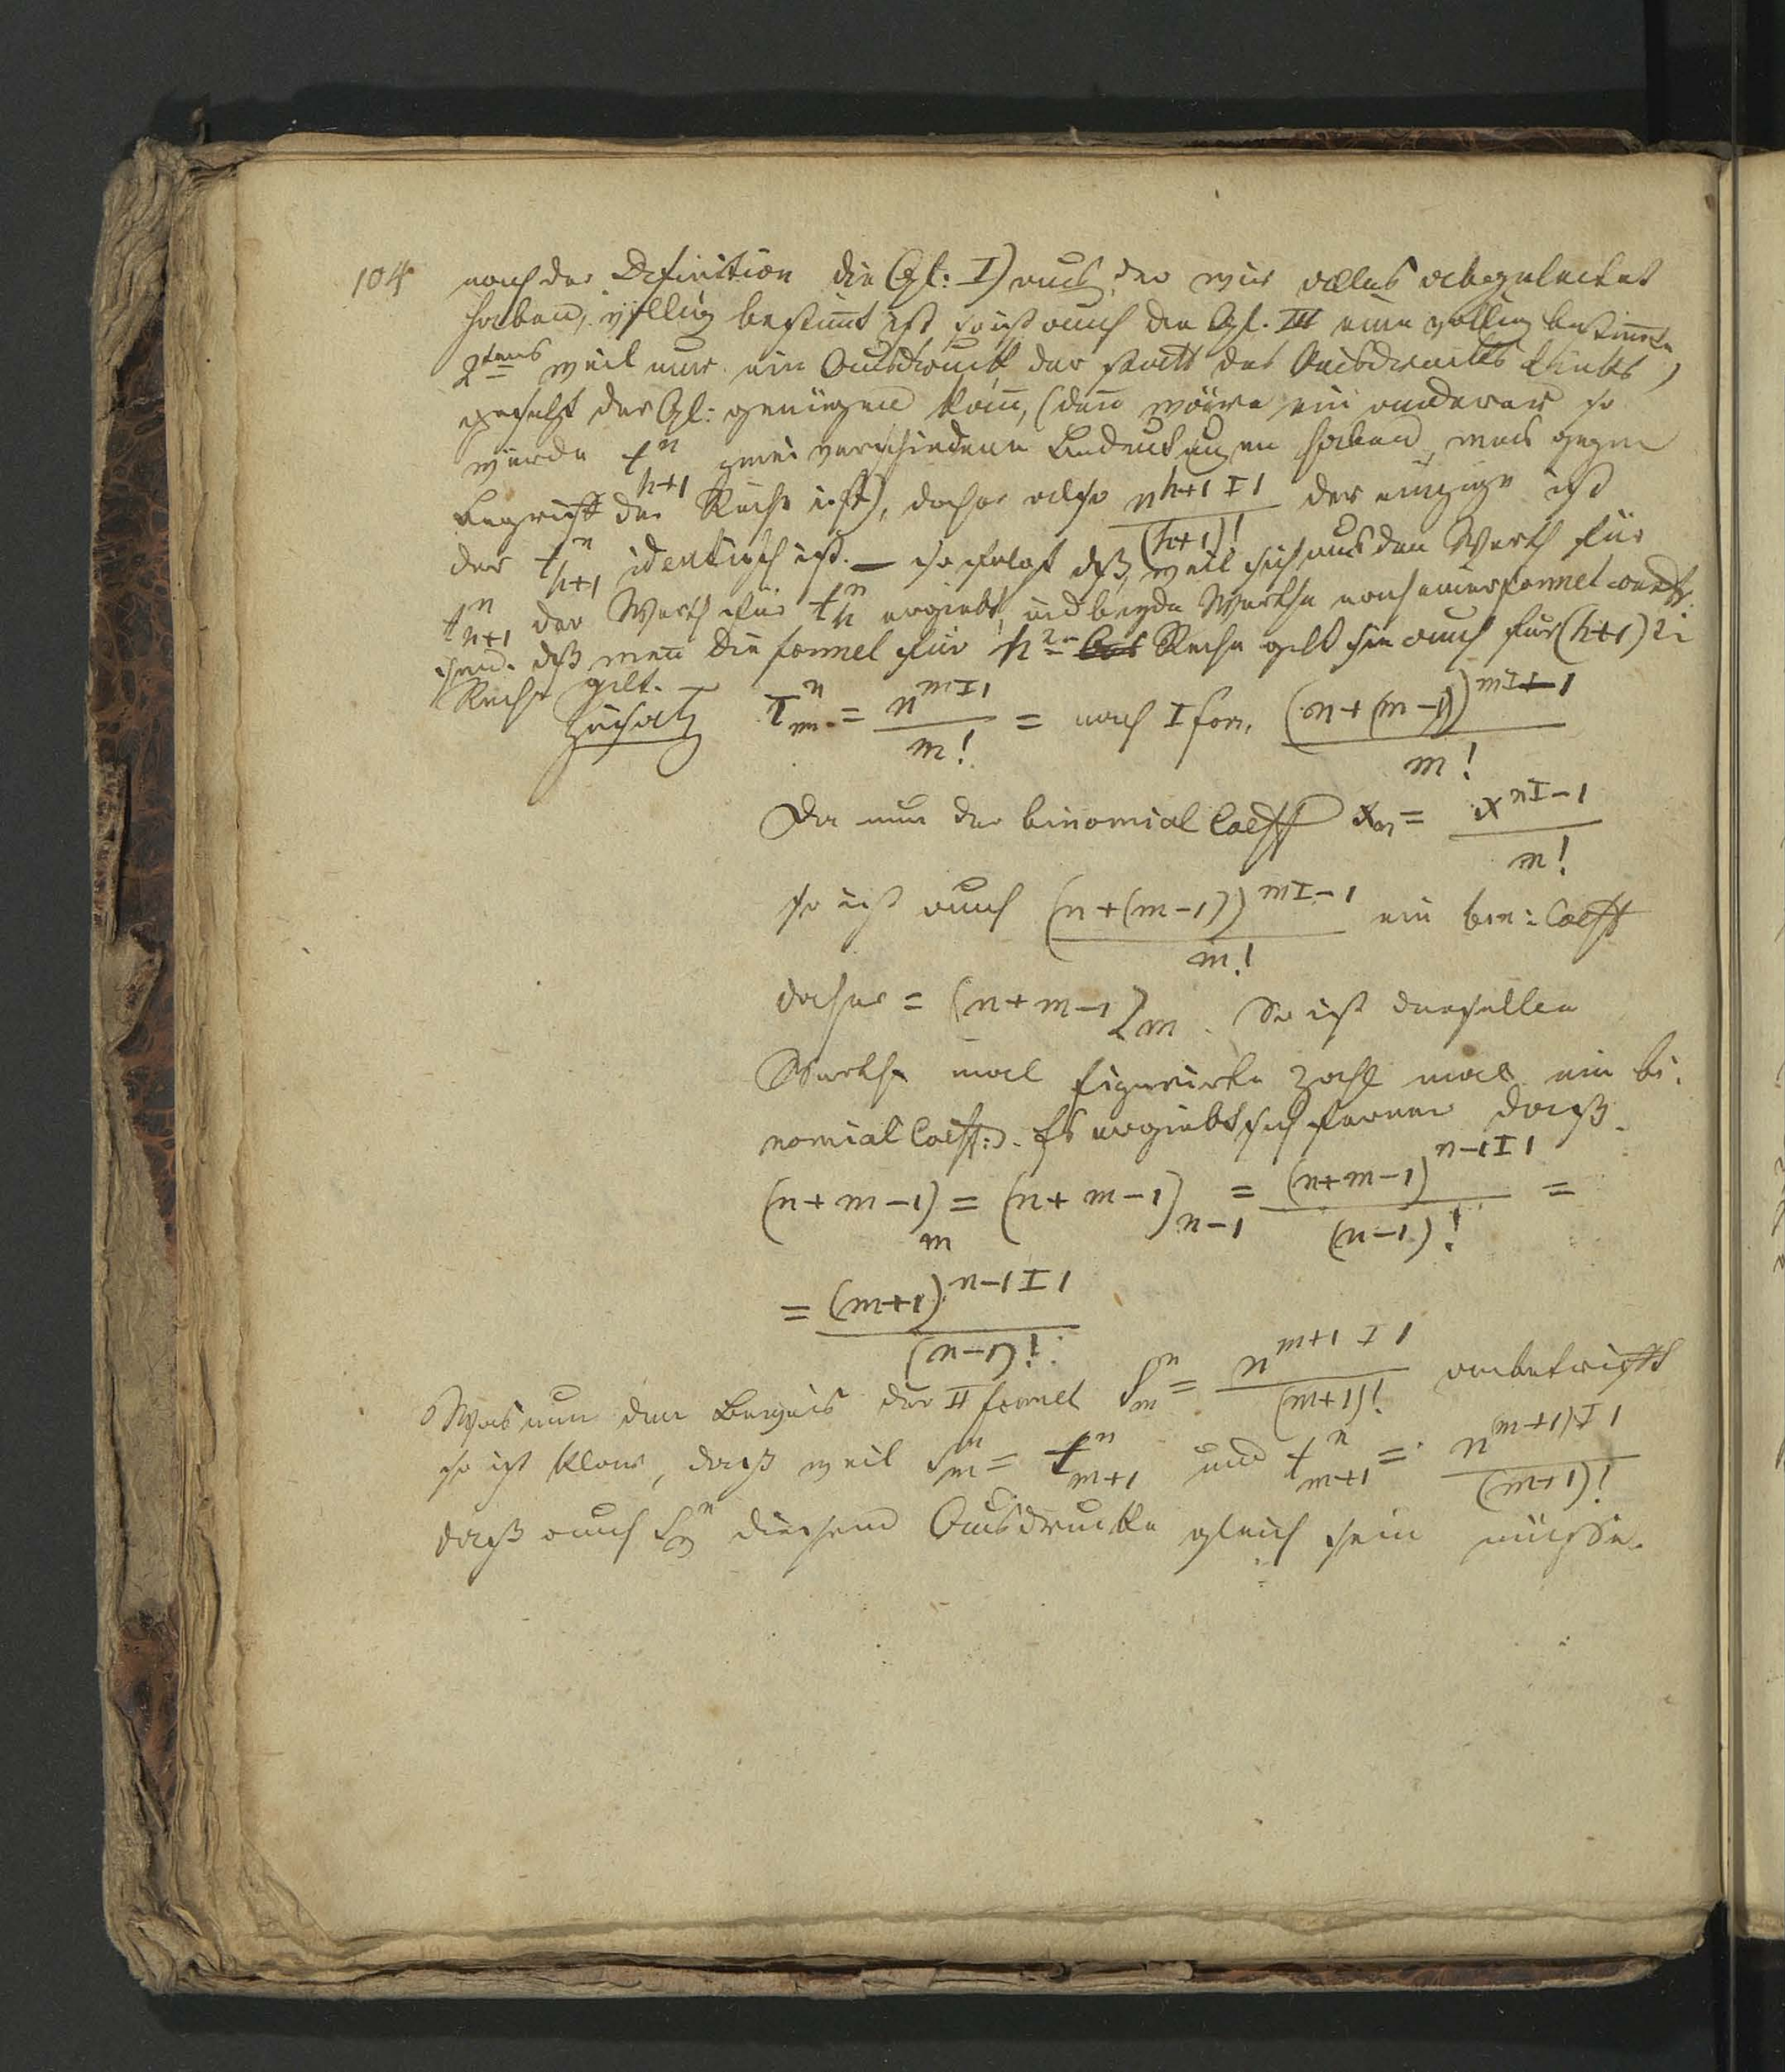 104 nach der Definition die (Gl: I) aus der wir alles abgeleitet
haben, völlig bestimt ist so ist auch die Gl. III eine völlig bestimte
2tens weil nur ein Ausdruck der statt des Ausdrucks links,
gesetzt der Gl: genügen kan, (den wäre ein anderer so
würde t^n_{h+1} zwei verschiedene Bedeutungen haben, was gegen
Begriff der Reihe ist), daher also \frac{n^{h+1 I 1}}{(h+1)!} der einzige ist
der t^n_{h+1} identisch ist. — so folgt dß, weil sich aus den Werth für
t^n_{h+1} der Werth für t^n_h ergiebt, und beyde Werthe nach einer Formel
sind. dß wen die Formel für h Reihe gilt sie auch für (h+1)
Reihe gilt. —
Zusatz T^n_m = \frac{n^{m I 1}}{m!} = nach I for. \frac{(n+(m-1))^{m I -1}}{m!}
Da nun der binomial Coeff x_m = \frac{x^{n I -1}}{m!}
so ist auch \frac{(n+(m-1))^{m I -1}}{m!} ein bin: Coeff
daher = (n+m-1)_m. Es ist derselbe
Werth mal figurirte Zahl mal ein bi-
nomial Coeff:. Es ergiebt sich ferner daß.
(n+m-1)_m = (n+m-1)_{n-1} = \frac{(n+m-1)^{n-1 I 1}}{(n-1)!} =
= \frac{(m+1)^{n-1 I 1}}{(n-1)!}
Was nun den Beweis der II Formel S^n_m = \frac{n^{m+1 I 1}}{(m+1)!} anbetrifft
so ist klar, daß weil S^n_m = t^n_{m+1} und t^n_{m+1} = \frac{n^{(m+1) I 1}}{(m+1)!}
daß auch S^n_m diesem Ausdrucke gleich sein müsse.